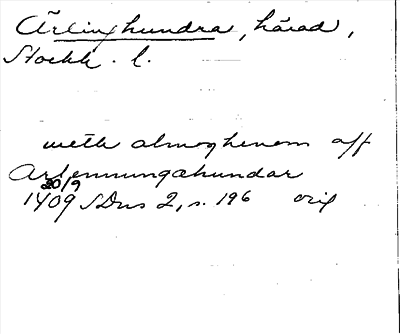 Ärlinghundra, härad,
Stockh. l.
meth almoghenom aff
Arlennungahundar
20/9
1409 SDns 2, s. 196 orig